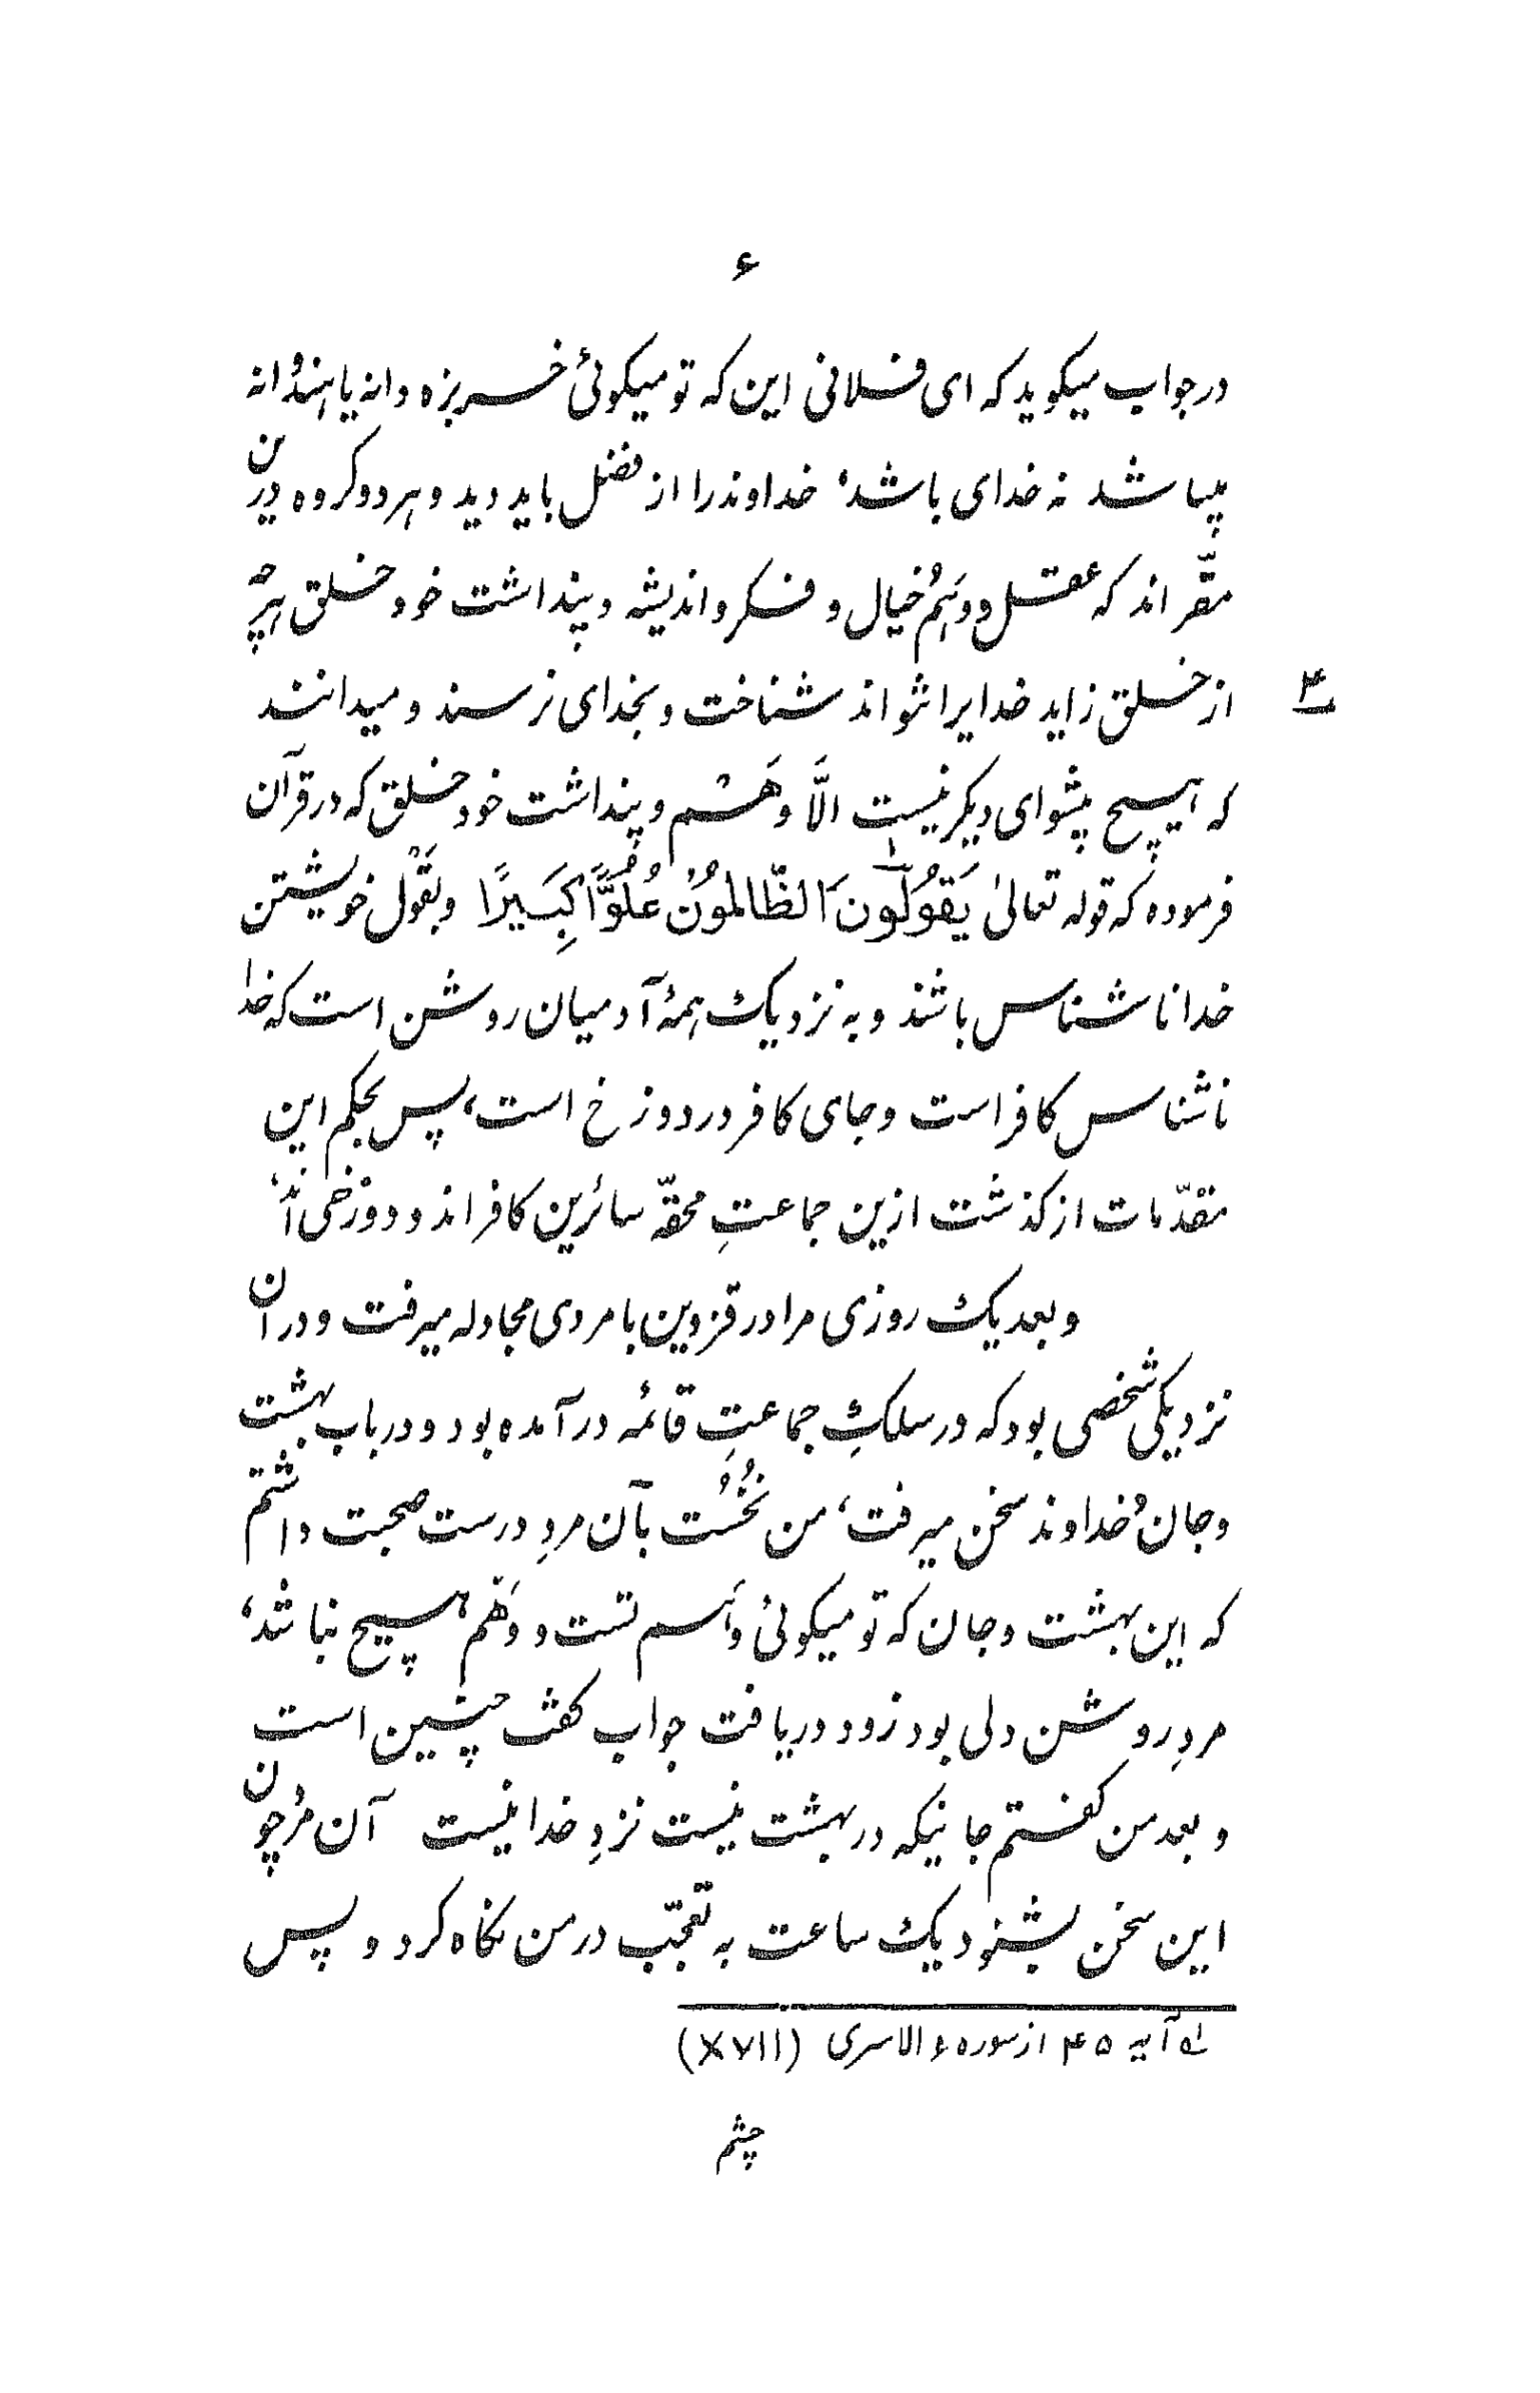 ۶
در جواب میکوید که ای فلانی این که تو میکوئی خربزه دانه یا هندُوانه
میباشد نه خدای باشد، خداوند را از فضل باید دید و هر دو کروه درین
مقرّ اند که عقل و وَهمُ خیال و فکر و اندیشه و پنداشت خود خلق هرچه
از خلق زاید خدایرا نتوانند شناخت و بخدای نرسند و میدانند
۴
که هیچ پیشوای دیکر نیست الّا وَهْم و پنداشت خود خلق که در قرآن
فرموده که قوله تعالیٰ یَقوُلُونَ الظّالمُونْ عُلُوًّا کَبِیرًا و بقَوْل خویشتن
خدا ناشناس باشند و به نزدیک همهٔ آدمیان روشن است که خدا
ناشناس کافر است و جای کافر در دوزخ است، پس بحکم این
مقدّمات از کذشت ازین جماعتِ محقّه سائرین کافر اند و دوزخی اند،
و بعد یک روزی مرا در قزوین با مردی مجادله میرفت و در آن
نزدیکی شخصی بود که در سلکِ جماعتِ قائمه در آمده بود و در باب بهشت
و جان خداوند سخن میرفت، من نخُسُت بآن مردِ درست صحبت داشتم
که این بهشت و جان که تو میکوئی وَاسم تست و وَهْم هیچ نباشد،
مردِ روشن دلی بود زود دریافت جواب کفت چنین است
و بعد من کفتم جانیکه در بهشت نیست نزدِ خدا نیست آن مرد چون
این سخن بشنود یک ساعت به تعجّب در من نکاه کرد و پس
۱ـه آیه ۴۵ از سوره الاسری (XVII)
چشم